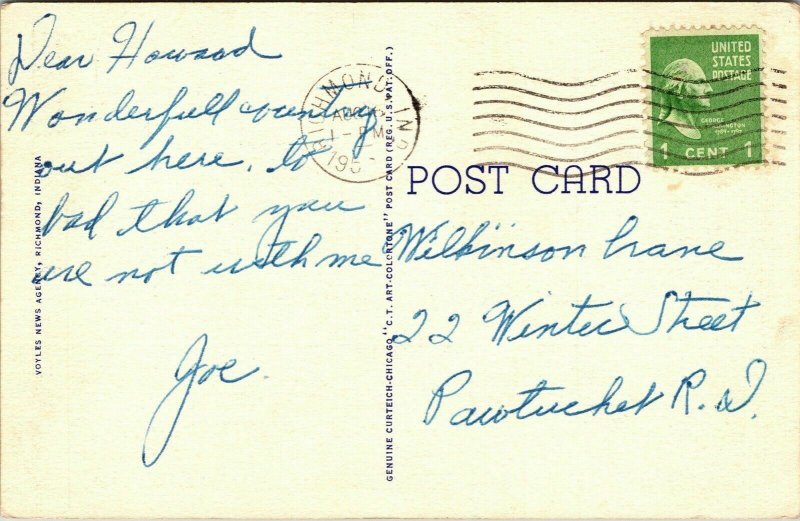 Dear Howard
Wonderfull country
out here, to
bad that you
are not with me
Joe.
VOYLES NEWS AGENCY, RICHMOND, INDIANA
GENUINE CURTEICH-CHICAGO "C.T. ART-COLORTONE" POST CARD (REG. U.S. PAT. OFF.)
RICHMOND IND
1-PM
UNITED
STATES
POSTAGE
GEORGE
WASHINGTON
1 CENT 1
POST CARD
Wilkinson Crane
22 Winter Street
Pawtucket R.I.